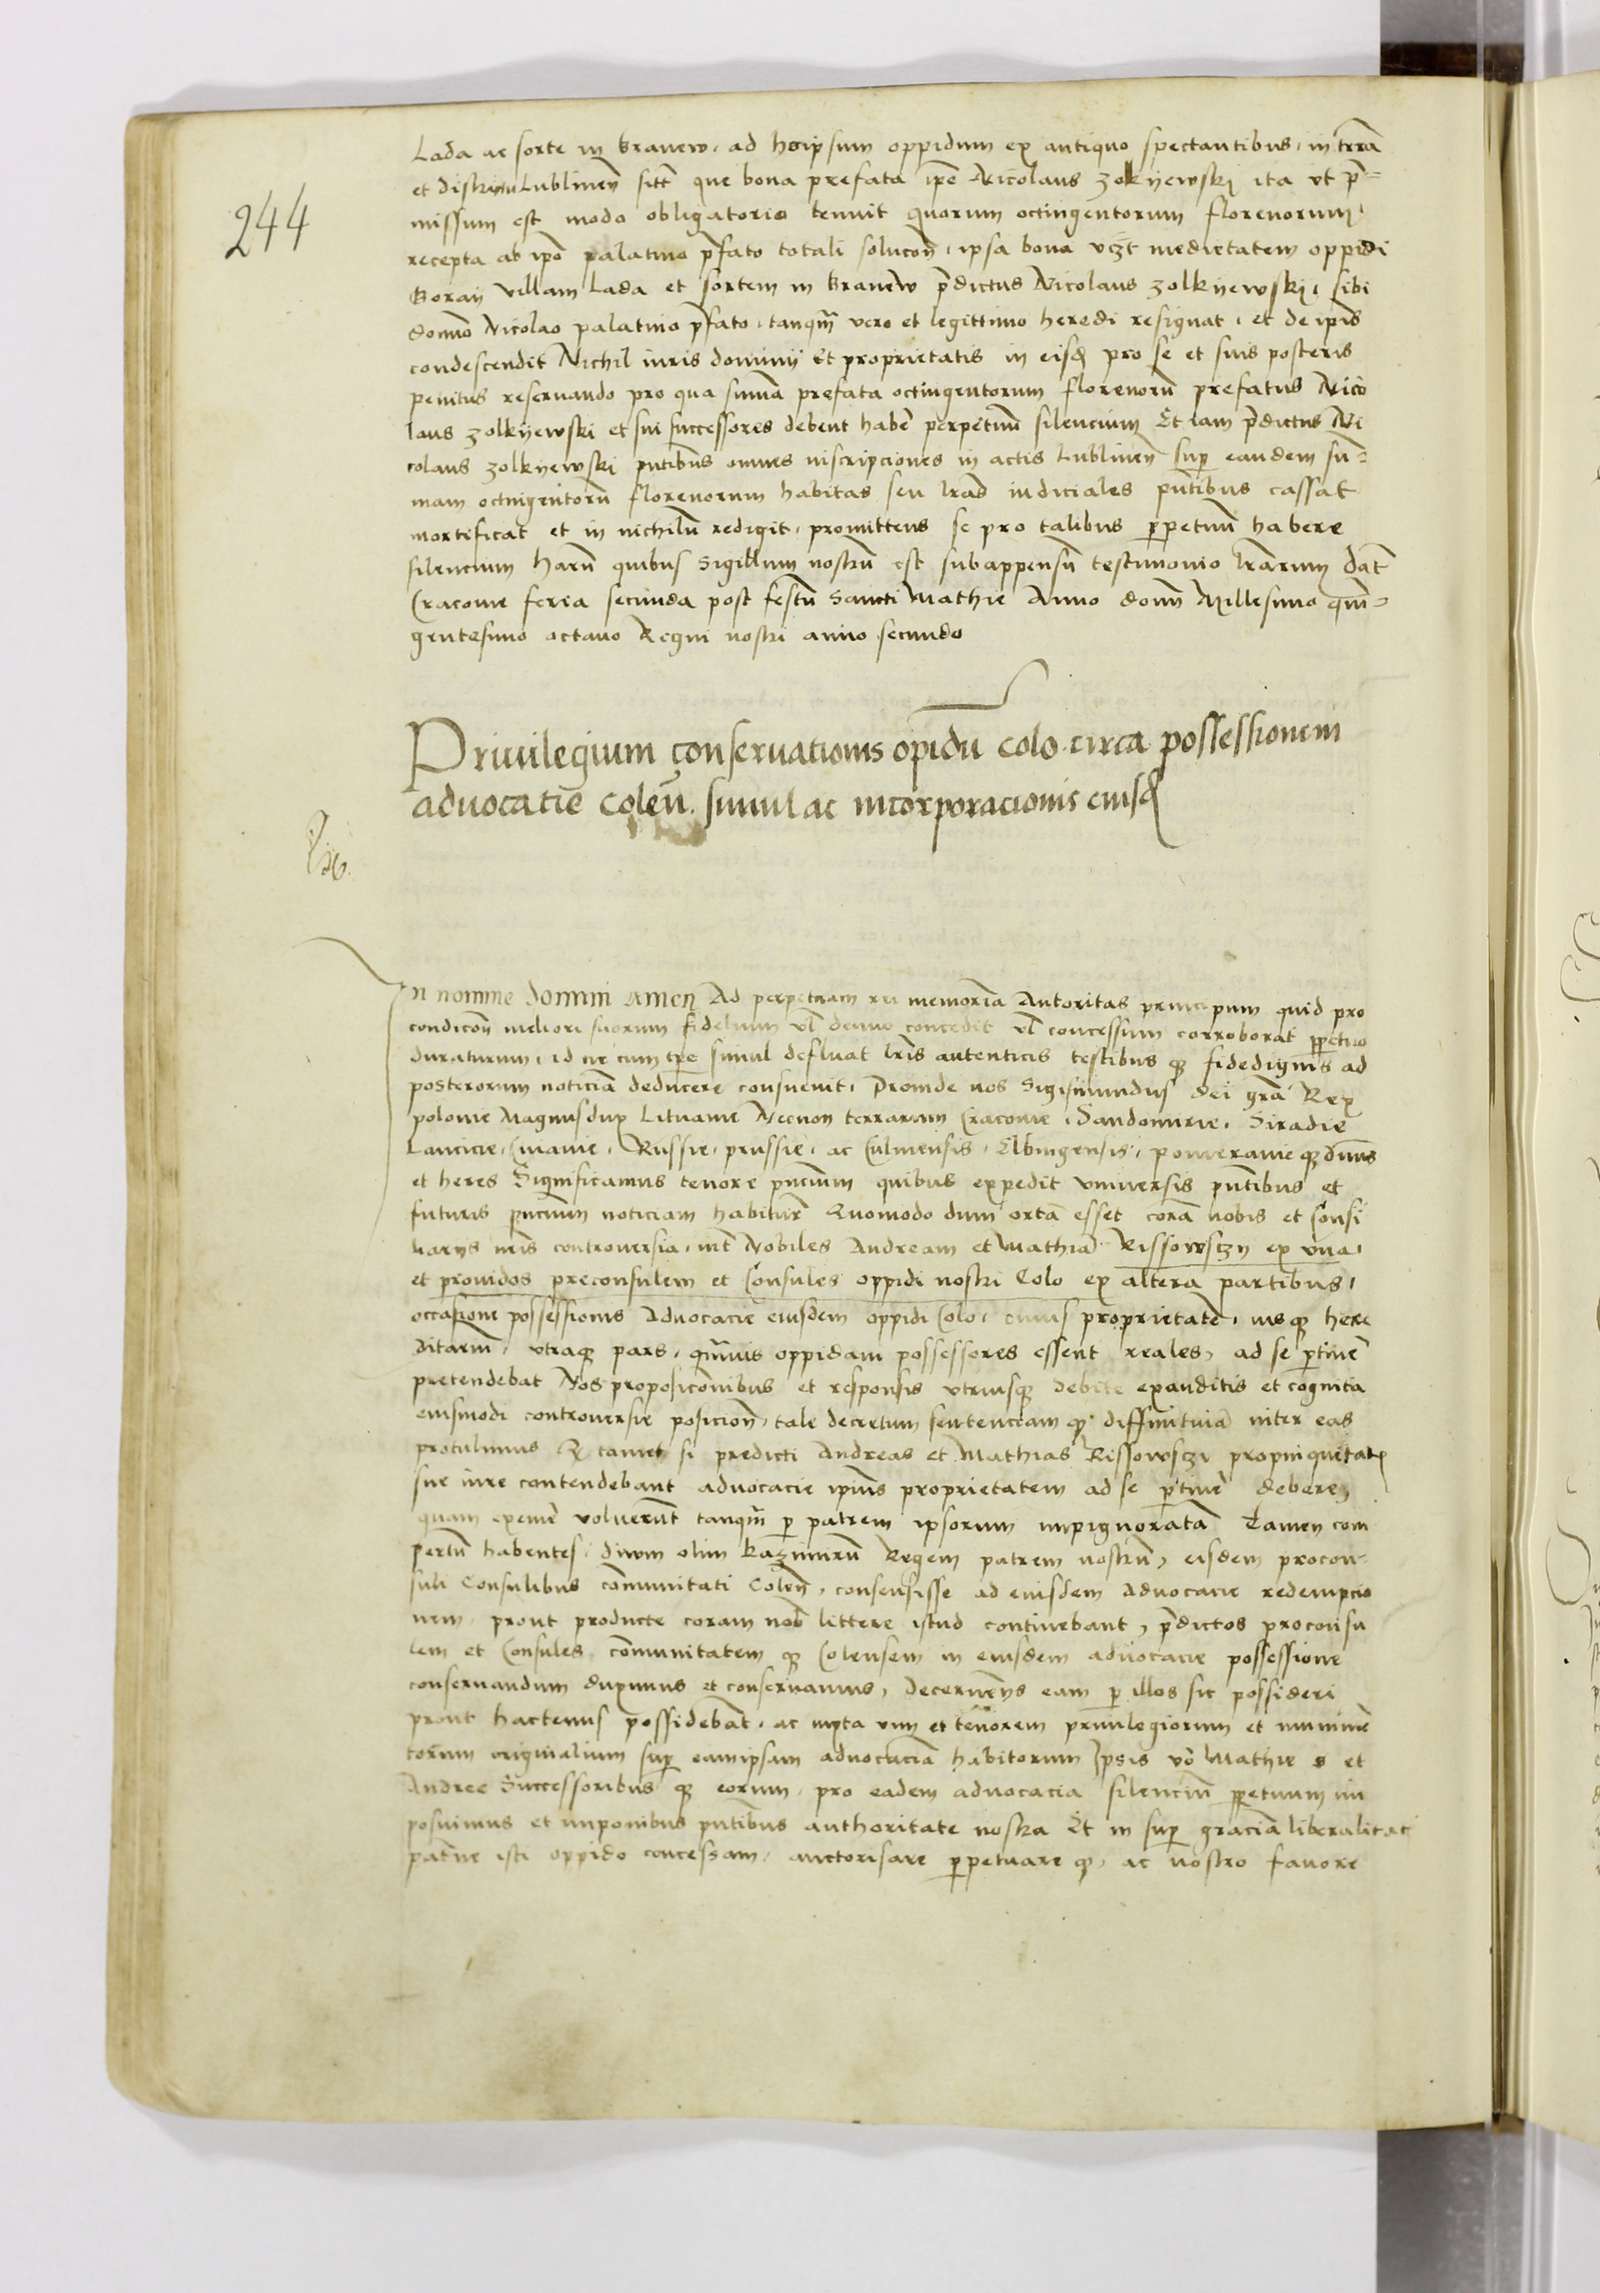 244
Lada ac sorte in Branew, ad hoc ipsum oppidum ex antiquo spectantibus, in terra
et districtu Lublineñ sitĩ que bona prefata ipse Nicolaus Zolkyewski ita ut p̃-
missum est modo obligatorio tenuit quorum octingentorum florenorum,
recepta ab ipõ palatino p̃fato totali solucoñ, ipsa bona vczt medietatem oppidi
Goray villam Lada et sortem in Branew p̃dictus Nicolaus Zolkyewski, sibi
domño Nicolao palatino p̃fato, tanq̃m vero et legittimo heredi resignat, et de ipĩs
condescendit Nichil iuris dominij Et proprietatis in eisd pro se et suis posteris
penitus reservando pro qua sum̃a prefata octingentorum florenorũ prefatus Nico
laus Zolkyewski et sui successores debent haber̃ perpetuũ silencium Et iam p̃dictus Ni
colaus Zolkyewski pñtibus omnes inscripciones in actis Lublineñ sup eandem sũ-
mam octingentorũ florenorum habitas seu lr̃as iudiciales pñtibus cassat
mortificat et in nichilũ redigit, promittens se pro talibus p̱petuũ habere
silencium Harũ quibus Sigillum nostrũ est subappensũ testimonio lr̃arum dat̃
Cracovie feria secunda post festũ Sancti Mathie Anno domñ Millesimo quĩ-
gentesimo octavo Regni nostri anno secundo
Privilegium conservationis opidũ Colo circa possessionem
advocatie Coleñ. simul ac incorporacionis eiusd
In nomine domini amen Ad perpetuam rei memoriã Autoritas principum quid pro
condicoñ meliori suorum fidelium vl̃ denuo concedit vl̃ concessum corroborat p̱petuo
duraturum, id ne cum tp̃e simul defluat lr̃is autenticis testibus q̃ fidedignis ad
posterorum noticiã deducere consuevit, Proinde nos Sigismundus dei gr̃a Rex
polonie Magnusdux Lituanie Necnon terrarum Cracovie, Sandomirie, Siradie
Lancicie, Cuiavie, Russie, prussie, ac Culmensis, Elbingensis, pomeranie q̃ dñus
et heres Significamus tenore pñcium quibus expedit universis pñtibus et
futuris pñcium noticiam habitur̃ Quomodo dum orta esset corã nobis et Consi
liarijs nr̃is controversia, int̃ Nobiles Andream et Mathiã Rissowsczy ex vna,
et providos preconsulem et Consules oppidi nostri Colo ex altera partibus,
occasione possessionis Advocacie eiusdem oppidi Colo, cuius proprietatẽ, iusq̃ here
ditariũ, utraq̃ pars, quĩvis oppidani possessores essent reales, ad se p̱tiner̃
pretendebat Nos proposicõnibus et responsis utriusq̃ debite exauditis et cognita
eiusmodi controversie posicioñ, tale decretum sentenciam q̃ diffinitivã inter eas
protulimus Q̃ tamet si predicti Andreas et Mathias Rissowsczi propinquitate
sue iure contendebant advocacie ip̃ius proprietatem ad se p̱tiner̃ debere,
quam eximer̃ voluerũt tanq̃m p̱ patrem ipsorum impignoratã Tamen com
pertũ habentes, divum olim Kazimirũ Regem patrem nostrũ, eisdem procon-
suli Consulibus com̃unitati Coleñ, consensisse ad eiusdem Advocacie redempcio
nem, prout producte coram nob̃ littere istud continebant, p̃dictos proconsu
lem et Consules com̃unitatem q̃ Colensem in eiusdem advocacie possessione
conservandum duximus et conservamus, Decernẽns eam p̱ illos sic possideri
prout hactenus possidebãt, ac iuxta vim et tenorem privilegiorum et munime
torum originalium sup eamipsam advocaciã habitorum Ipsis vo Mathie et
Andree Successoribus q̃ eorum, pro eadem advocacia silenciũ p̱petuum im
posuimus et imponibus pñtibus authoritate nostra Et in sup graciã liberalitat
pat̃ne isti oppido concessam, auctorisare p̱petuare q̃, ac nostro favore